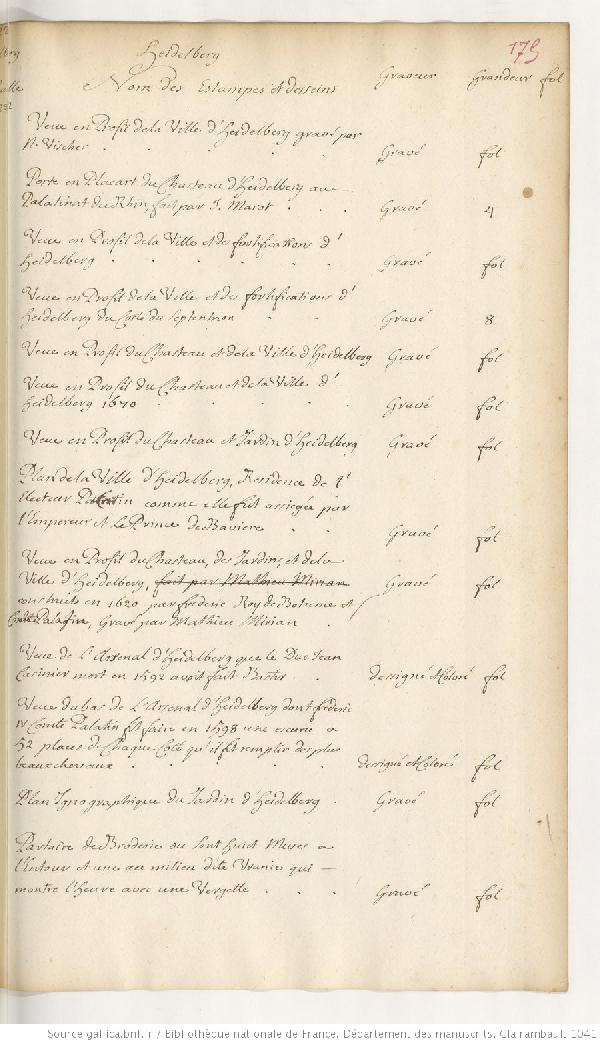 Heidelberg
175
Nom des Estampes et desseins
Graveur
Grandeur
fol
Veue en Profil de la Ville d'Heidelberg gravé par
N. Vischer
Gravé
fol
Porte en Placart du Chasteau d'Heidelberg au
Palatinat du Rhin, fait par J. Marot
Gravé
4
Veue en Profil de la Ville et des fortifications d'
Heidelberg
Gravé
fol
Veue en Profil de la Ville et des fortifications d'
Heidelberg du Costé du septentrion
Gravé
8
Veue en Profil du Chasteau et de la Ville d'Heidelberg
Gravé
fol
Veue en Profil du Chasteau et de la Ville d'
Heidelberg 1670
Gravé
fol
Veue en Profil du Chasteau et Jardin d'Heidelberg
Gravé
fol
Plan de la Ville d'Heidelberg, Residence de l'
Electeur Palatin comme elle fut assiegée par
l'Empereur et le Prince de Baviere
Gravé
fol
Veue en Profil du Chasteau, des Jardins, et de la
Ville d'Heidelberg, fait par Mathieu Mirian
Gravé
fol
construits en 1620 par frederic Roy de Boheme et
Comte Palatin, Gravé par Mathieu Mirian
Veue de l'Arsenal d'Heidelberg que le Duc Jean
Casimier mort en 1592 avoit fait Bastir
dessigné et Coloré
fol
Veue du bas de l'Arsenal d'Heidelberg dont frederic
IV Comte Palatin fit faire en 1598 une escurie a
52 places de Chaque Costé qu'il fit remplir des plus
beaux chevaux
dessigné et Coloré
fol
Plan Ignographique du Jardin d'Heidelberg
Gravé
fol
Partaire de Broderie ou sont huict Muses a
l'Entour et une au milieu dite Uranie qui
montre l'heure avec une Vergette
Gravé
fol
Source gallica.bnf.fr / Bibliothèque nationale de France. Département des manuscrits. Clairambault 1041